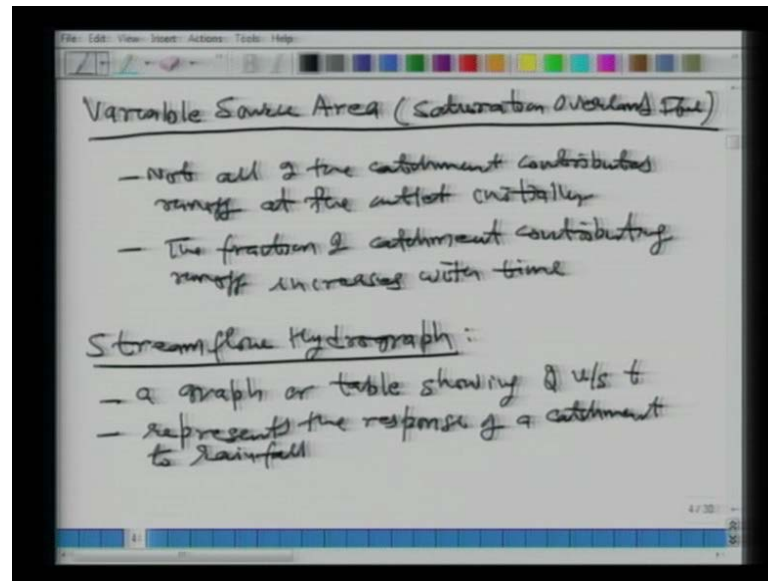 File Edit View Insert Actions Tools Help
Variable Source Area (Saturation Overland Flow)
- Not all of the catchment contributes
runoff at the outlet initially
- The fraction of catchment contributing
runoff increases with time
Streamflow Hydrograph :
- a graph or table showing Q v/s t
- represents the response of a catchment
to rainfall
4 / 30
4